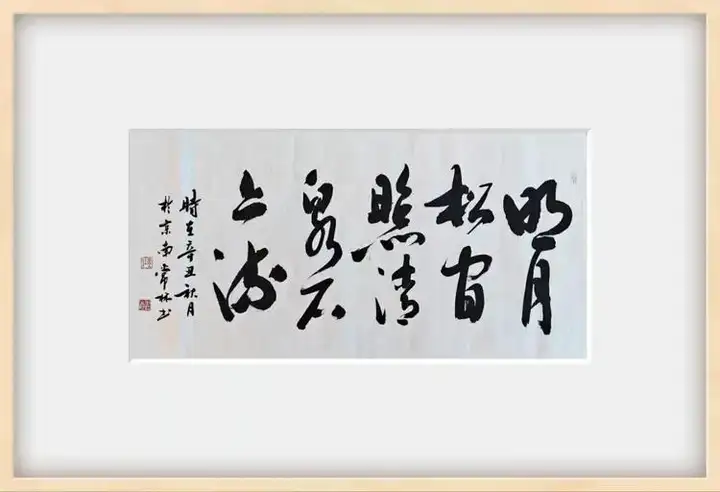 明月
松間
照清
泉石
上流
時在辛丑秋月
於京南常林书